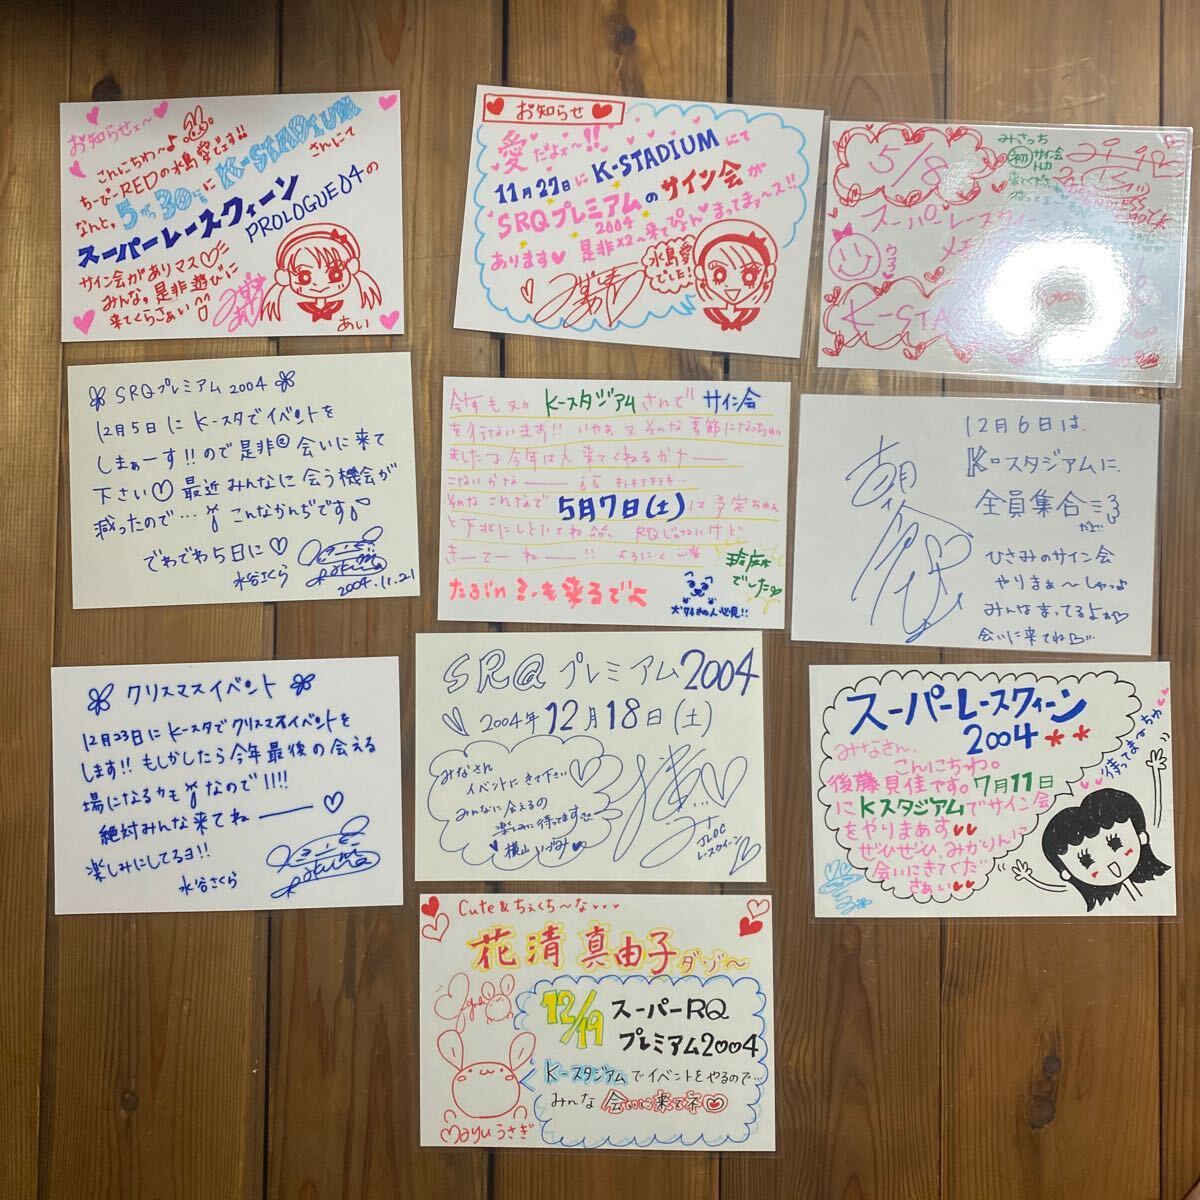 お知らせェ～
こんにちわ～♪
ちーびーREDの水島愛でェす!!
なんと、5月30日にK-STADIUMさんにて
スーパーレースクィーン
PROLOGUE04の
サイン会がありマス♡
みんな。是非遊びに
来てくらさぁい
あい
お知らせ
愛だよォ～!!
11月27日にK-STADIUMにて
SRQプレミアムのサイン会が
2004
あります♥是非×2～来てぴょん♥まってまぁ～ス!!
水島愛
でした!
みさっち
5/8
初サイン会
スーパーレースクィーン
K-STA
SRQプレミアム2004
12月5日にK-スタでイベントを
しまぁーす!!ので是非②会いに来て
下さい♡最近みんなに会う機会が
減ったので…こんなかんぢです♪
でわでわ5日に♡
水谷さくら
2004.11.21
今年も又々K-スタジアムさんでサイン会
を行ないます!!いやぁ又そんな季節になっちゃい
ましたョ今年は人来てくれるかナー
こないかなー
そんなこんなで5月7日(土)は予定ちゃん
と下北にしといてねRQじゃないけど
きーてーねー!!よろしく
でした
たぶんミーも来るでよ
犬好きの人必見!!
12月6日は、
K-スタジアムに、
全員集合
だよ
ひさみのサイン会
やりまぁ～しゃっよ
みんなまってるよぉ♡
会いに来てね♡…
クリスマスイベント
12月23日にK-スタでクリスマスイベントを
します!!もしかしたら今年最後の会える
場になるカモなので!!!!
絶対みんな来てねー♡
楽しみにしてるヨ!!
水谷さくら
SRQプレミアム2004
2004年12月18日(土)
みなさん
イベントにきて下さい♡
みんなに会えるの
楽しみに待ってます
横山いづみ♡
JLOC
レースクイーン
スーパーレースクィーン
2004**
みなさん、
こんにちわ。
後藤見佳です。7月11日
にKスタジアムでサイン会
をやりまぁす♥♥
ぜひぜひ、みかりんに
会いにきてくだ
さぁい♥♥
待ってまーちゅ♥
Cute&ちぇくち～な♥♥♥
花清真由子ダゾ～
12/19
スーパーRQ
プレミアム2004
K-スタジアムでイベントをやるので…
みんな会いに来てネ♡
Mayuうさぎ